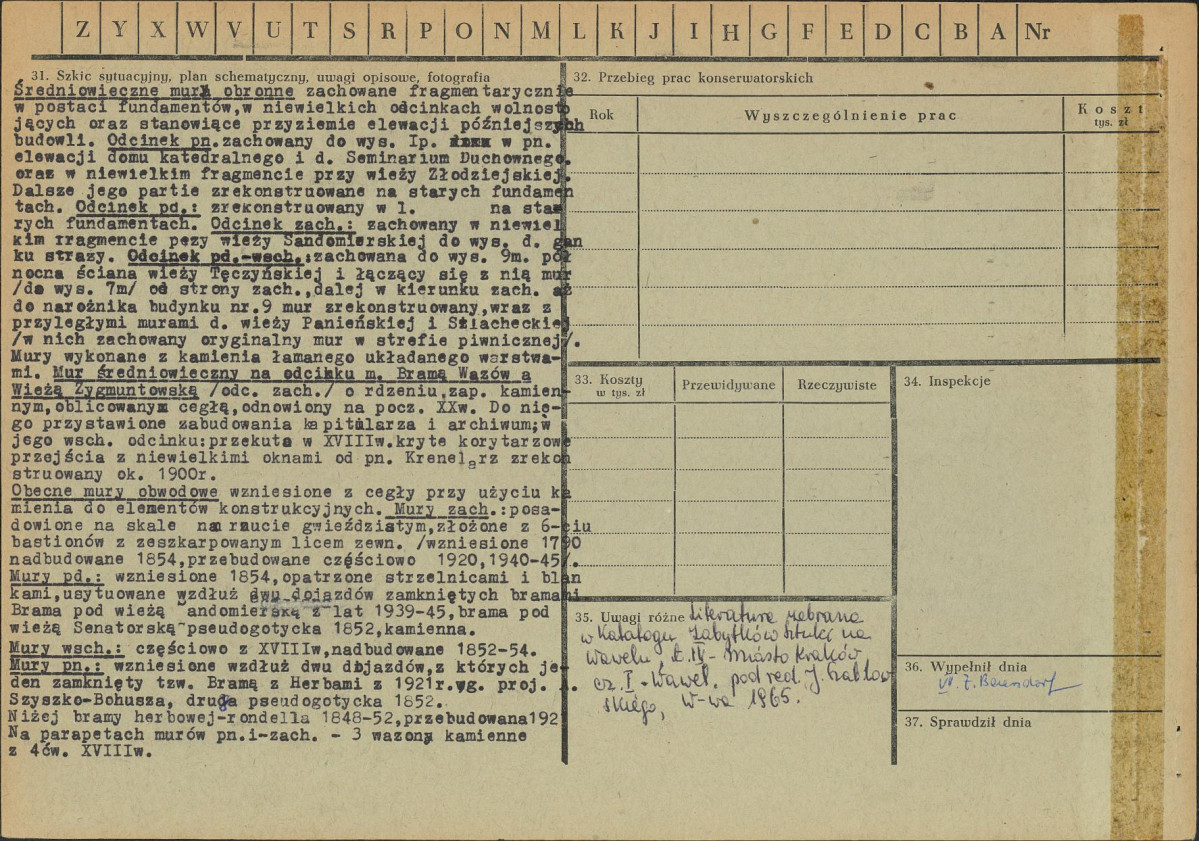 Z Y X W V U T S R P O N M L K J I H G F E D C B A Nr
31. Szkic sytuacyjny, plan schematyczny, uwagi opisowe, fotografia
Średniowieczne mury obronne zachowane fragmentarycznie
w postaci fundamentów,w niewielkich odcinkach wolnosto
jących oraz stanowiące przyziemie elewacji późniejszych
budowli. Odcinek pn.zachowany do wys. Ip. w pn.
elewacji domu katedralnego i d. Seminarium Duchownego.
oraz w niewielkim fragmencie przy wieży Złodziejskiej.
Dalsze jego partie zrekonstruowane na starych fundamen
tach. Odcinek pd.: zrekonstruowany w l. na sta
rych fundamentach. Odcinek zach.: zachowany w niewiel
kim fragmencie pezy wieży Sandomierskiej do wys. d. gan
ku straży. Odcinek pd.-wsch.:zachowana do wys. 9m. pół
nocna ściana wieży Tęczyńskiej i łączący się z nią mur
/do wys. 7m/ od strony zach.,dalej w kierunku zach. aż
do narożnika budynku nr.9 mur zrekonstruowany,wraz z
przyległymi murami d. wieży Panieńskiej i Szlacheckiej
/w nich zachowany oryginalny mur w strefie piwnicznej/.
Mury wykonane z kamienia łamanego układanego warstwa-
mi. Mur średniowieczny na odcinku m. Bramą Wazów a
Wieżą Zygmuntowską /odc. zach./ o rdzeniu,zap. kamien-
nym,oblicowanym cegłą,odnowiony na pocz. XXw. Do nie-
go przystawione zabudowania kapitularza i archiwum;w
jego wsch. odcinku:przekuta w XVIIIw.kryte korytarzowe
przejścia z niewielkimi oknami od pn. Krenelarz zrekon
struowany ok. 1900r.
Obecne mury obwodowe wzniesione z cegły przy użyciu ka
mienia do elementów konstrukcyjnych. Mury zach.:posa-
dowione na skale na rzucie gwieździstym,złożone z 6-ciu
bastionów z zeszkarpowanym licem zewn. /wzniesione 1790
nadbudowane 1854,przebudowane częściowo 1920,1940-45/.
Mury pd.: wzniesione 1854,opatrzone strzelnicami i blan
kami,usytuowane wzdłuż dwu dojazdów zamkniętych bramami
Brama pod wieżą andomierską z lat 1939-45,brama pod
wieżą Senatorską pseudogotycka 1852,kamienna.
Mury wsch.: częściowo z XVIIIw,nadbudowane 1852-54.
Mury pn.: wzniesione wzdłuż dwu dojazdów,z których je-
den zamknięty tzw. Bramą z Herbami z 1921r.wg. proj. A.
Szyszko-Bohusza, druga pseudogotycka 1852.
Niżej bramy herbowej-rondella 1848-52,przebudowana192
Na parapetach murów pn.i-zach. - 3 wazony kamienne
z 4ćw. XVIIIw.
32. Przebieg prac konserwatorskich
Rok
Wyszczególnienie prac
Koszt
tys. zł
33. Koszty
w tys. zł
Przewidywane
Rzeczywiste
34. Inspekcje
35. Uwagi różne Literatura zebrana
w Katalogu Zabytków Sztuki na
Wawelu, t. IV - Miasto Kraków
cz. I - Wawel, pod red. J. Szablow
skiego, W-wa 1965.
36. Wypełnił dnia
37. Sprawdził dnia